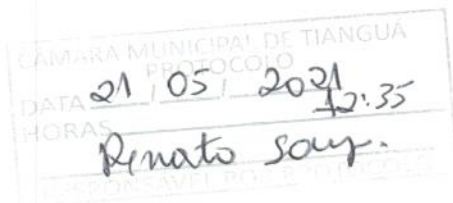 CÂMARA MUNICIPAL DE TIANGUÁ
PROTOCOLO
DATA 21 / 05 / 2021
HORAS 12:35
Renato
RESPONSÁVEL